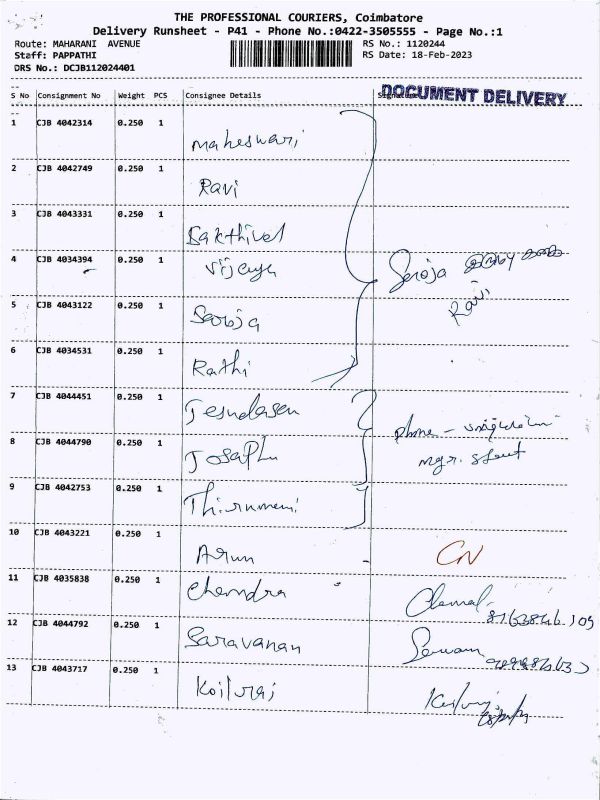 THE PROFESSIONAL COURIERS, Coimbatore
Delivery Runsheet - P41 - Phone No.:0422-3505555 - Page No.:1
Route: MAHARANI AVENUE
RS No.: 1120244
Staff: PAPPATHI
RS Date: 18-Feb-2023
DRS No.: DCJB112024401
DOCUMENT DELIVERY
S No Consignment No Weight PCS Consignee Details Signature
1 CJB 4042314 0.250 1 Maheswari
2 CJB 4042749 0.250 1 Ravi
3 CJB 4043331 0.250 1 Sakthivel
4 CJB 4034394 0.250 1 Vijaya Saroja
Ravi
5 CJB 4043122 0.250 1 Saroja
6 CJB 4034531 0.250 1 Rathi
7 CJB 4044451 0.250 1 Jesudasen Phone -
8 CJB 4044790 0.250 1 Josaph mgr. Steut
9 CJB 4042753 0.250 1 Thirumeni
10 CJB 4043221 0.250 1 Arun - CN
11 CJB 4035838 0.250 1 Chandra
12 CJB 4044792 0.250 1 Saravanan
13 CJB 4043717 0.250 1 Koilraj